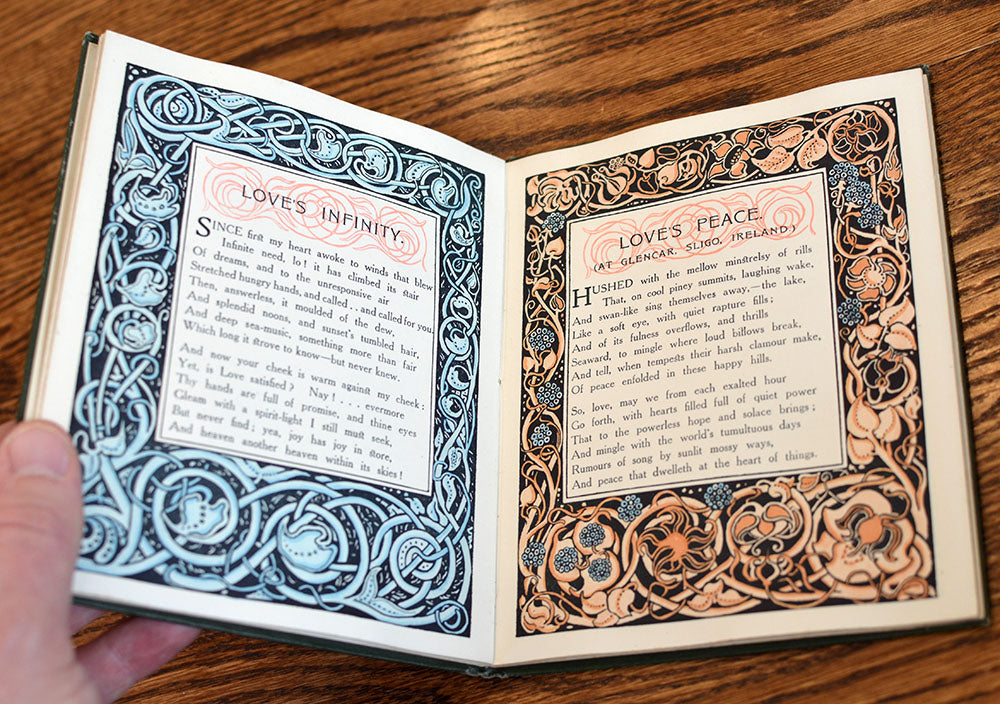 LOVE'S INFINITY.
SINCE first my heart awoke to winds that blew
Infinite need, lo! it has climbed its stair
Of dreams, and to the unresponsive air
Stretched hungry hands, and called . . and called for you.
Then, answerless, it moulded of the dew,
And splendid noons, and sunset's tumbled hair,
And deep sea-music, something more than fair
Which long it strove to know—but never knew.
And now your cheek is warm against my cheek:
Yet, is Love satisfied? Nay! . . evermore
Thy hands are full of promise, and thine eyes
Gleam with a spirit-light I still must seek,
But never find; yea, joy has joy in store,
And heaven another heaven within its skies!
LOVE'S PEACE.
(AT GLENCAR, SLIGO, IRELAND)
HUSHED with the mellow minstrelsy of rills
That, on cool piney summits, laughing wake,
And swan-like sing themselves away,—the lake,
Like a soft eye, with quiet rapture fills;
And of its fulness overflows, and thrills
Seaward, to mingle where loud billows break,
And tell, when tempests their harsh clamour make,
Of peace enfolded in these happy hills.
So, love, may we from each exalted hour
Go forth, with hearts filled full of quiet power
That to the powerless hope and solace brings;
And mingle with the world's tumultuous days
Rumours of song by sunlit mossy ways,
And peace that dwelleth at the heart of things.